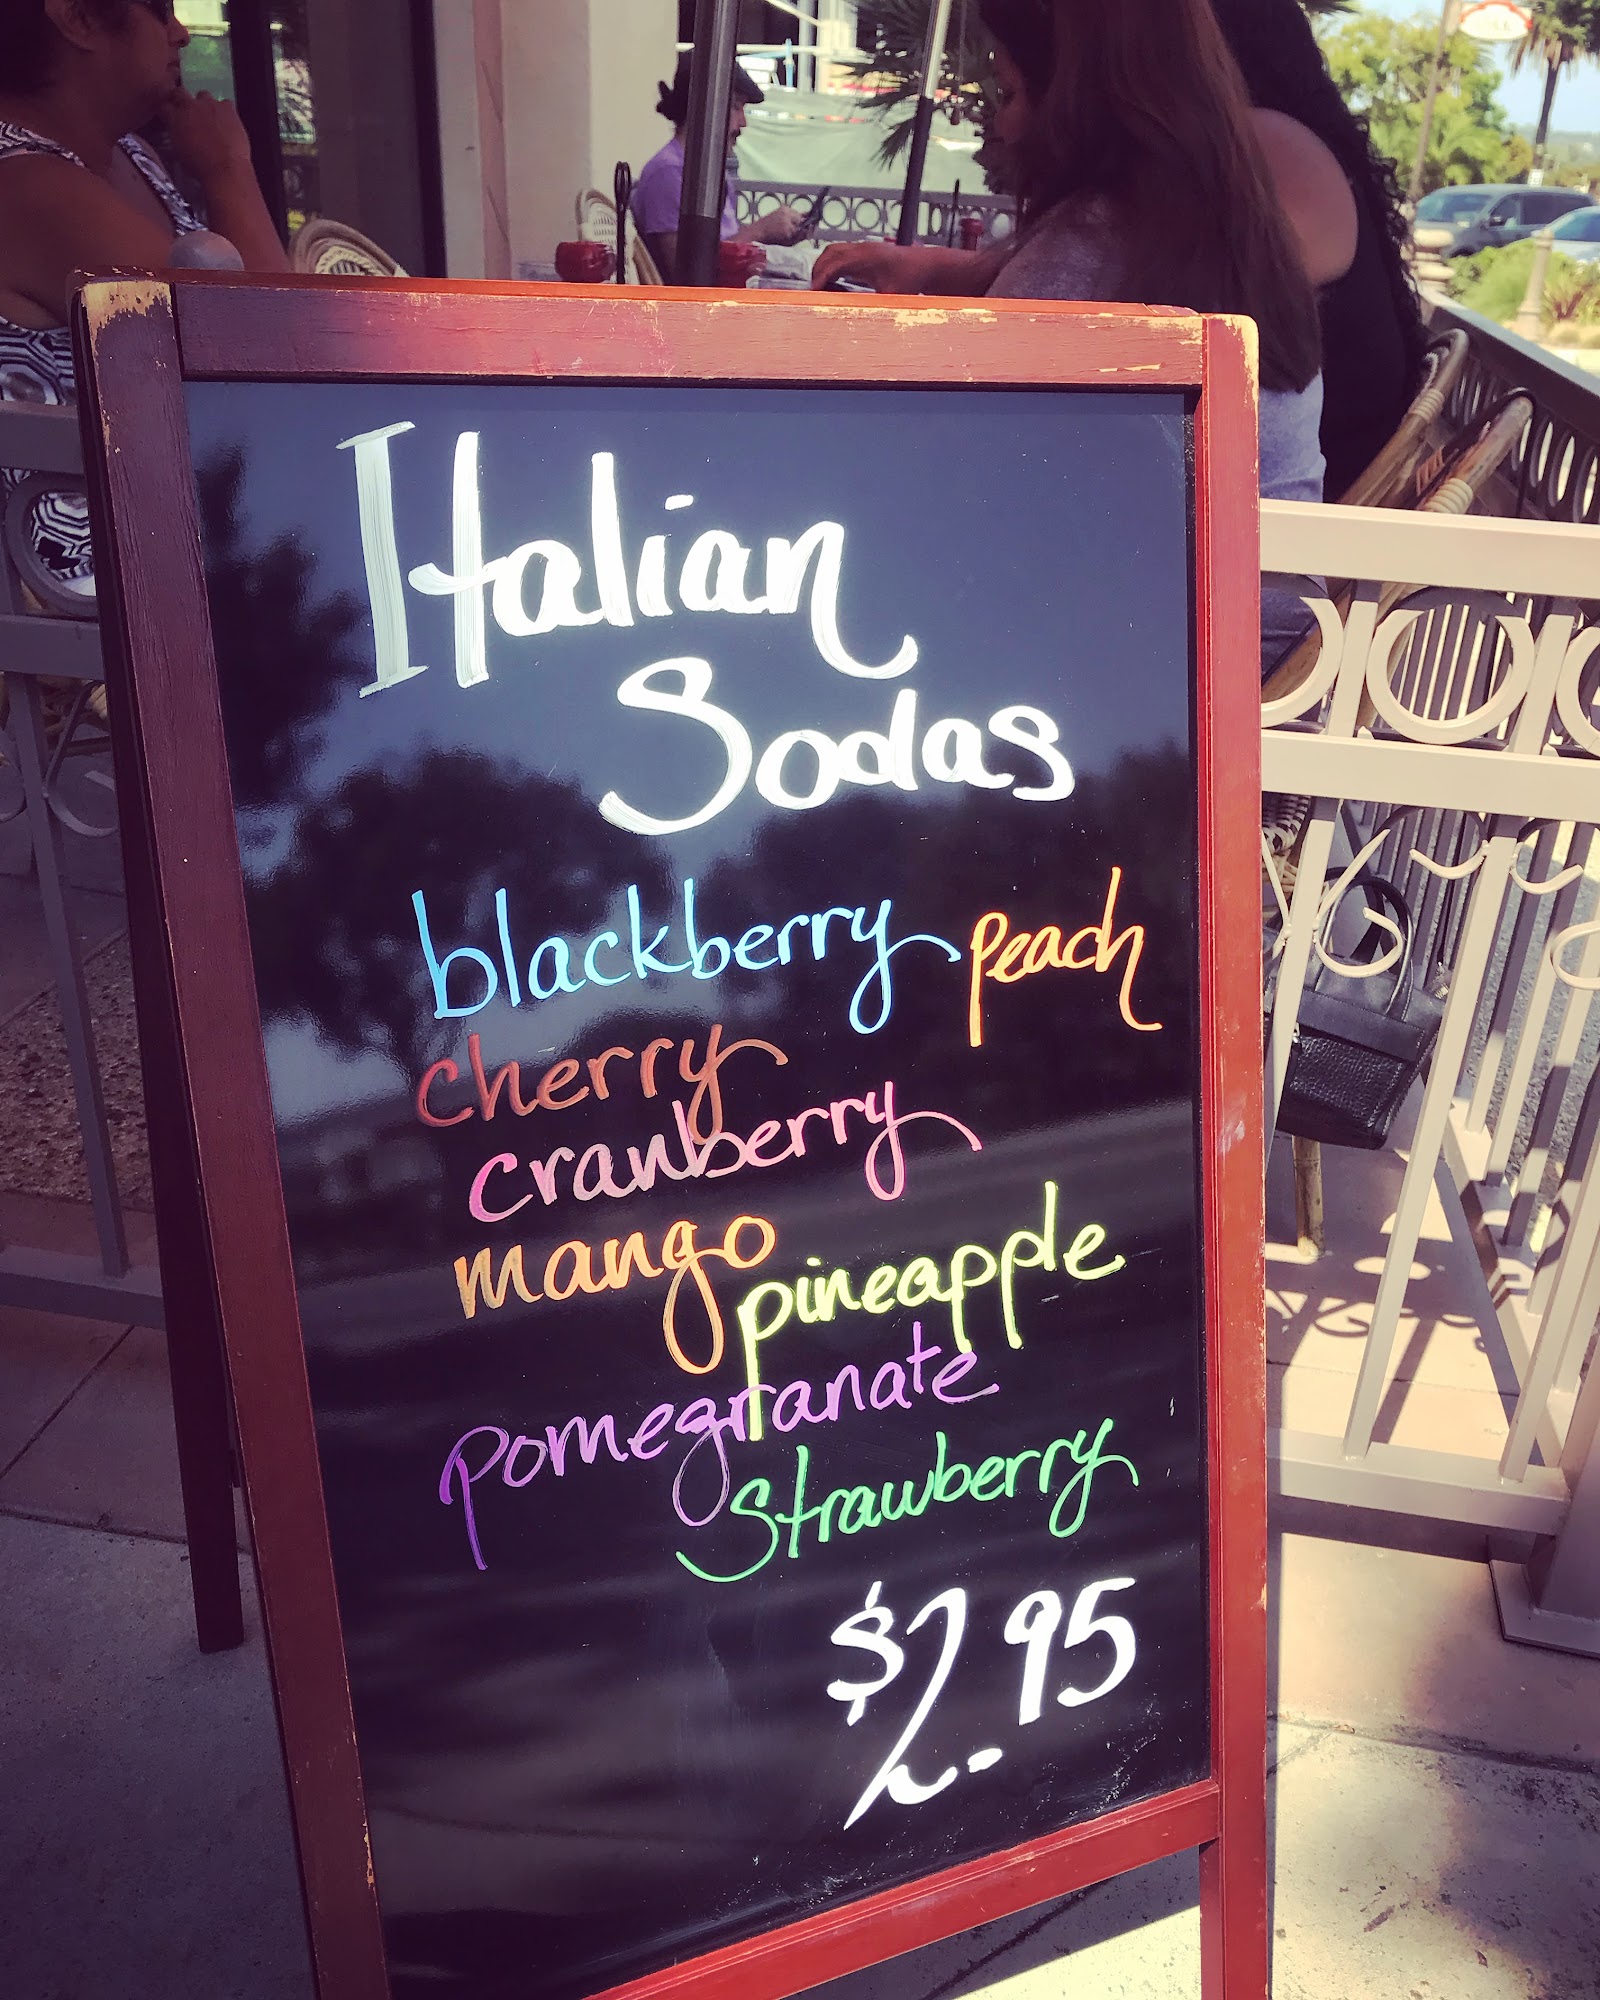 Italian
Sodas
blackberry peach
cherry
cranberry
mango
pineapple
pomegranate
Strawberry
$2.95